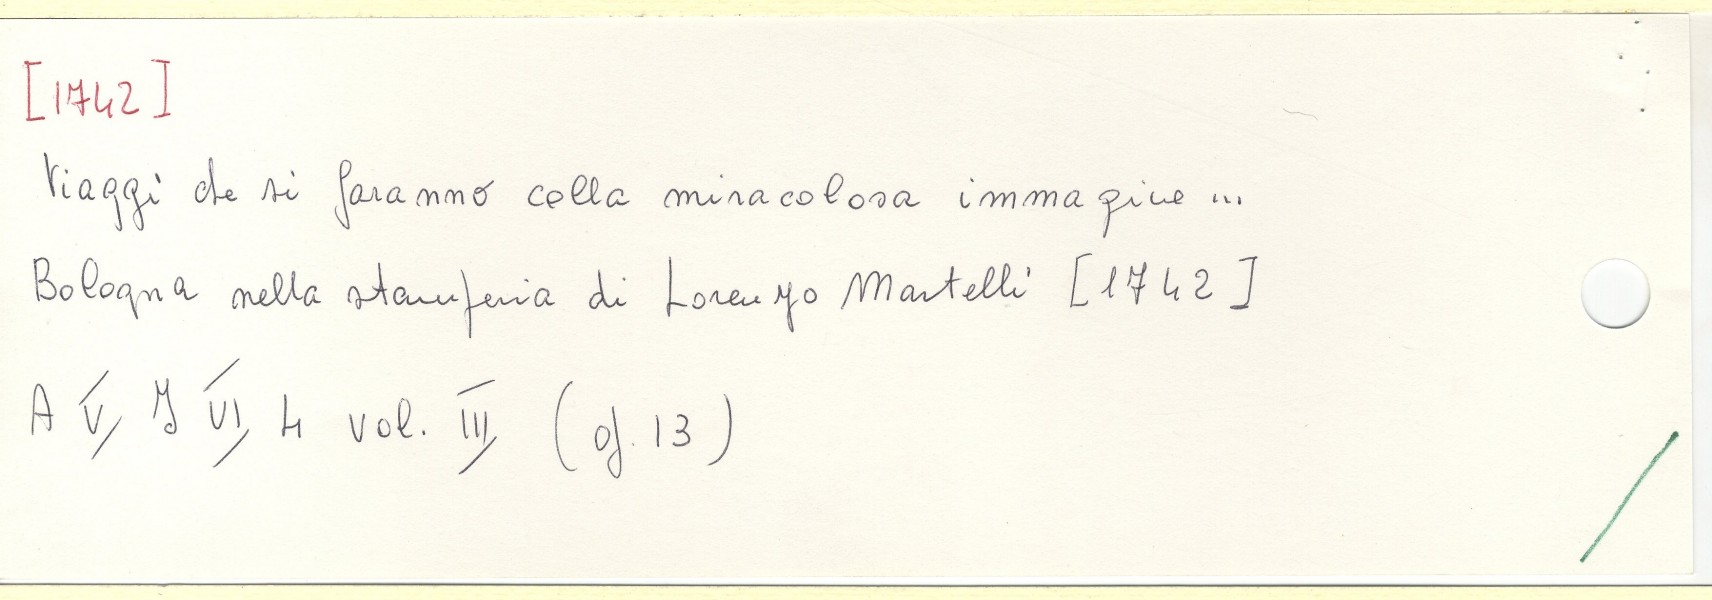 [1742]
Viaggi che si faranno colla miracolosa immagine ...
Bologna nella stamperia di Lorenzo Martelli [1742]
A V, Y VI, 4 vol. III (of. 13)